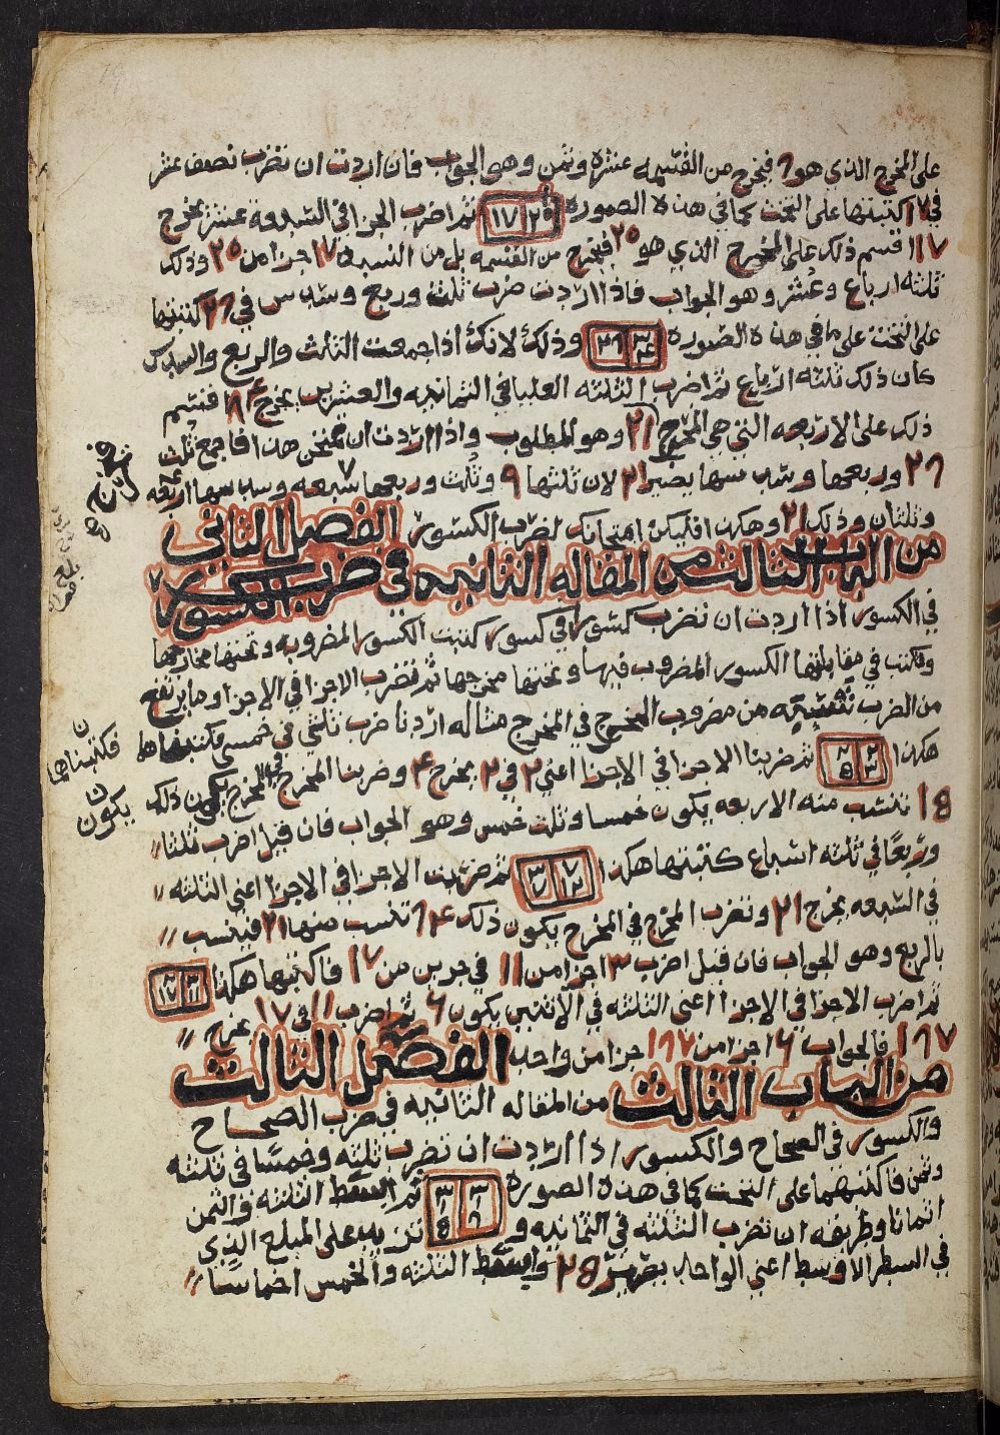 على المخرج الذي هو ٨ فيخرج من القسمه عشرة وثمن وهو الجواب فان اردت ان تضرب نصف عشر
في ١٧ كتبتها على التخت كما في هذه الصورة ثم اضرب الجزا في السبعة عشر يخرج
١٧ اقسم ذلك على المخرج الذي هو ٢٥ فيخرج من القسمه بل من النسبة ١٧ جزا من ٢٥ وذلك
ثلثه ارباع وعشر وهو الجواب فاذا اردت ضرب ثلث وربع وسدس في ٢٨ كتبتها
على التخت على ما في هذه الصوره وذلك لانك اذا جمعت الثلث والربع والسدس
كان ذلك ثلثه ارباع ثم اضرب الثلثه العليا في الثمانيه والعشرين يخرج ٨٤ اقسم
ذلك على الاربعه التي هي المخرج ٢١ وهو المطلوب واذا اردت ان تمتحن هذا فاجمع ثلث
٢٨ وربعها وسدسها يصير ٢١ لان ثلثها ٩ وثلث وربعها سبعه وسدسها اربعه
وثلثان وذلك ٢١ وهكذا فليكن امتحانك لضرب الكسور الفصل الثاني
من الباب الثالث من المقاله الثانيه في ضرب الكسور
في الكسور اذا اردت ان تضرب كسورا في كسور كتبت الكسور المضروبه وتحتها مخارجها
وكتب في مقابلتها الكسور المضروب فيها وتحتها مخرجها ثم تضرب الاجزا في الاجزا وما يرتفع
من الضرب تقسمه من مضروب المخرج في المخرج مثاله اردنا ضرب ثلثي في خمسي فكتبناها
هكذا ٢ ٣ ٢ ٥ ثم ضربنا الاجزا في الاجزا اعني ٢ في ٢ يخرج ٤ وضربنا المخرج في المخرج يكون ذلك
١٥ تنسب منه الاربعه يكون خمسا وثلث خمس وهو الجواب فان قيل اضرب ثلثا
وربعا في ثلثه اسباع كتبتها هكذا ٧ ١٢ ٣ ٧ ثم ضربت الاجزا في الاجزا اعني الثلثه
في السبعه يخرج ٢١ وتضرب المخرج في المخرج يكون ذلك ٨٤ تنسب منها ٢١ فينسب
بالربع وهو الجواب فان قيل اضرب ٣ اجزا من ١١ في جزين من ١٧ فاكتبها هكذا
ثم اضرب الاجزا في الاجزا اعني الثلثه في الاثنين يكون ٦ ثم اضرب ١١ في ١٧ يخرج
١٨٧ فالجواب ٦ اجزا من ١٨٧ جزا من واحد الفصل الثالث
من الباب الثالث من المقاله الثانيه في ضرب الصحاح
والكسور في الصحاح والكسور اذا اردت ان تضرب ثلثه وخمسا في ثلثه
وثمن فاكتبهما على التخت كما في هذه الصورة ثم ابسط الثلثه والثمن
اثمانا وطريقه ان تضرب الثلثه في الثمانيه و تزيد على المبلغ الذي
في السطر الاوسط اعني الواحد يصير ٢٥ وابسط الثلثه والخمس اخماسا
فكتبناها
يكون